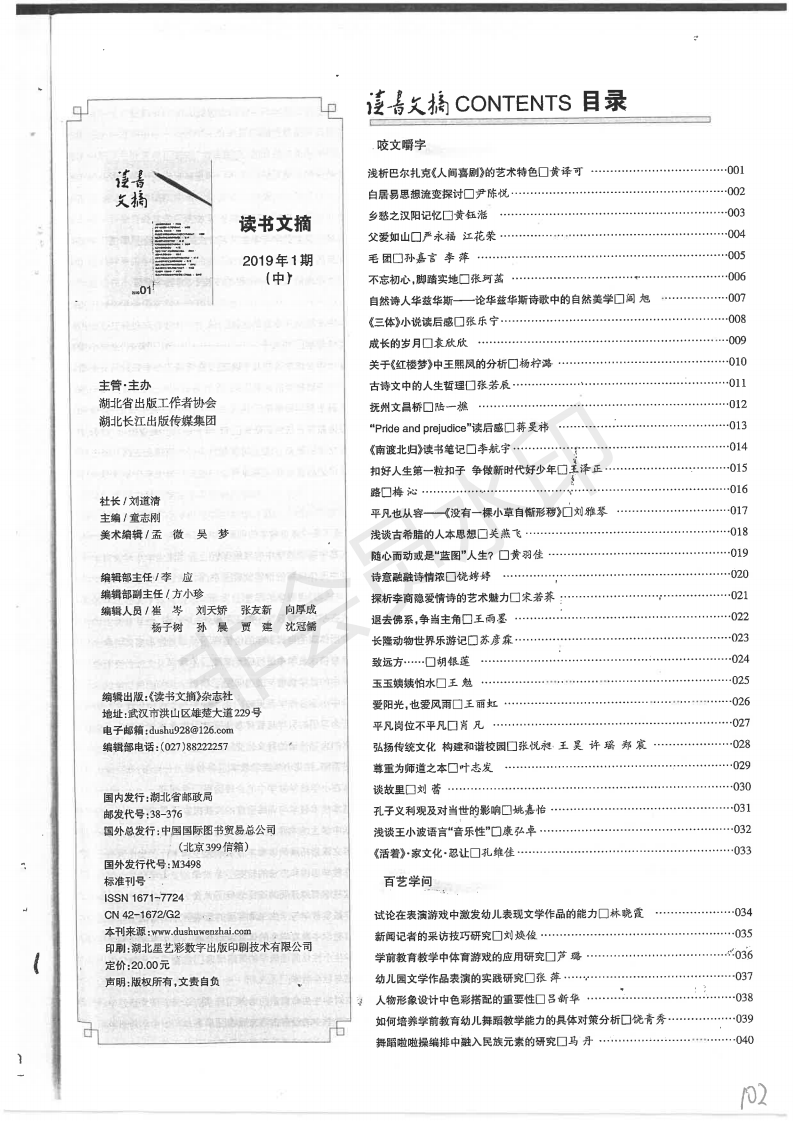 读书文摘
01
读书文摘
2019年1期
(中)
主管·主办
湖北省出版工作者协会
湖北长江出版传媒集团
社长/刘道清
主编/童志刚
美术编辑/孟 微 吴 梦
编辑部主任/李 应
编辑部副主任/方小珍
编辑人员/崔 岑 刘天娇 张友新 向厚成
杨子树 孙 晨 贾 建 沈冠儒
编辑出版:《读书文摘》杂志社
地址:武汉市洪山区雄楚大道229号
电子邮箱:dushu928@126.com
编辑部电话:(027)88222257
国内发行:湖北省邮政局
邮发代号:38-376
国外总发行:中国国际图书贸易总公司
(北京399信箱)
国外发行代号:M3498
标准刊号
ISSN 1671-7724
CN 42-1672/G2
本刊来源:www.dushuwenzhai.com
印刷:湖北星艺彩数字出版印刷技术有限公司
定价:20.00元
声明:版权所有,文责自负
读书文摘 CONTENTS 目录
咬文嚼字
浅析巴尔扎克《人间喜剧》的艺术特色□黄译可 ······001
白居易思想流变探讨□尹陈悦······002
乡愁之汉阳记忆□黄钰湉 ······003
父爱如山□严永福 江花荣 ······004
毛 团□孙嘉言 李 萍 ······005
不忘初心,脚踏实地□张珂菡 ······006
自然诗人华兹华斯——论华兹华斯诗歌中的自然美学□阎 旭 ······007
《三体》小说读后感□张乐宁······008
成长的岁月□袁欣欣 ······009
关于《红楼梦》中王熙凤的分析□杨柠潞 ······010
古诗文中的人生哲理□张若辰······011
抚州文昌桥□陆一樵 ······012
“Pride and prejudice”读后感□蒋旻祎 ······013
《南渡北归》读书笔记□李航宇······014
扣好人生第一粒扣子 争做新时代好少年□王泽正······015
路□梅 沁 ······016
平凡也从容——《没有一棵小草自惭形秽》□刘雅琴 ······017
浅谈古希腊的人本思想□关燕飞 ······018
随心而动或是“蓝图”人生?□黄羽佳 ······019
诗意融融诗情浓□饶娉婷 ······020
探析李商隐爱情诗的艺术魅力□宋若荞 ······021
退去佛系,争当主角□王雨墨 ······022
长隆动物世界乐游记□苏彦霖······023
致远方······□胡银莲 ······024
玉玉姨姨怕水□王 勉 ······025
爱阳光,也爱风雨□王丽虹 ······026
平凡岗位不平凡□肖 凡 ······027
弘扬传统文化 构建和谐校园□张悦昶 王 昊 许 瑶 郑 宸 ······028
尊重为师道之本□叶志发 ······029
谈故里□刘 蕾 ······030
孔子义利观及对当世的影响□姚嘉怡 ······031
浅谈王小波语言“音乐性”□康弘卓 ······032
《活着》·家文化·忍让□孔维佳······033
百艺学问
试论在表演游戏中激发幼儿表现文学作品的能力□林晓霞 ······034
新闻记者的采访技巧研究□刘焕俊 ······035
学前教育教学中体育游戏的应用研究□芦 璐 ······036
幼儿园文学作品表演的实践研究□张 萍 ······037
人物形象设计中色彩搭配的重要性□吕新华 ······038
如何培养学前教育幼儿舞蹈教学能力的具体对策分析□饶青秀······039
舞蹈啦啦操编排中融入民族元素的研究□马 丹 ······040
非会员水印
102